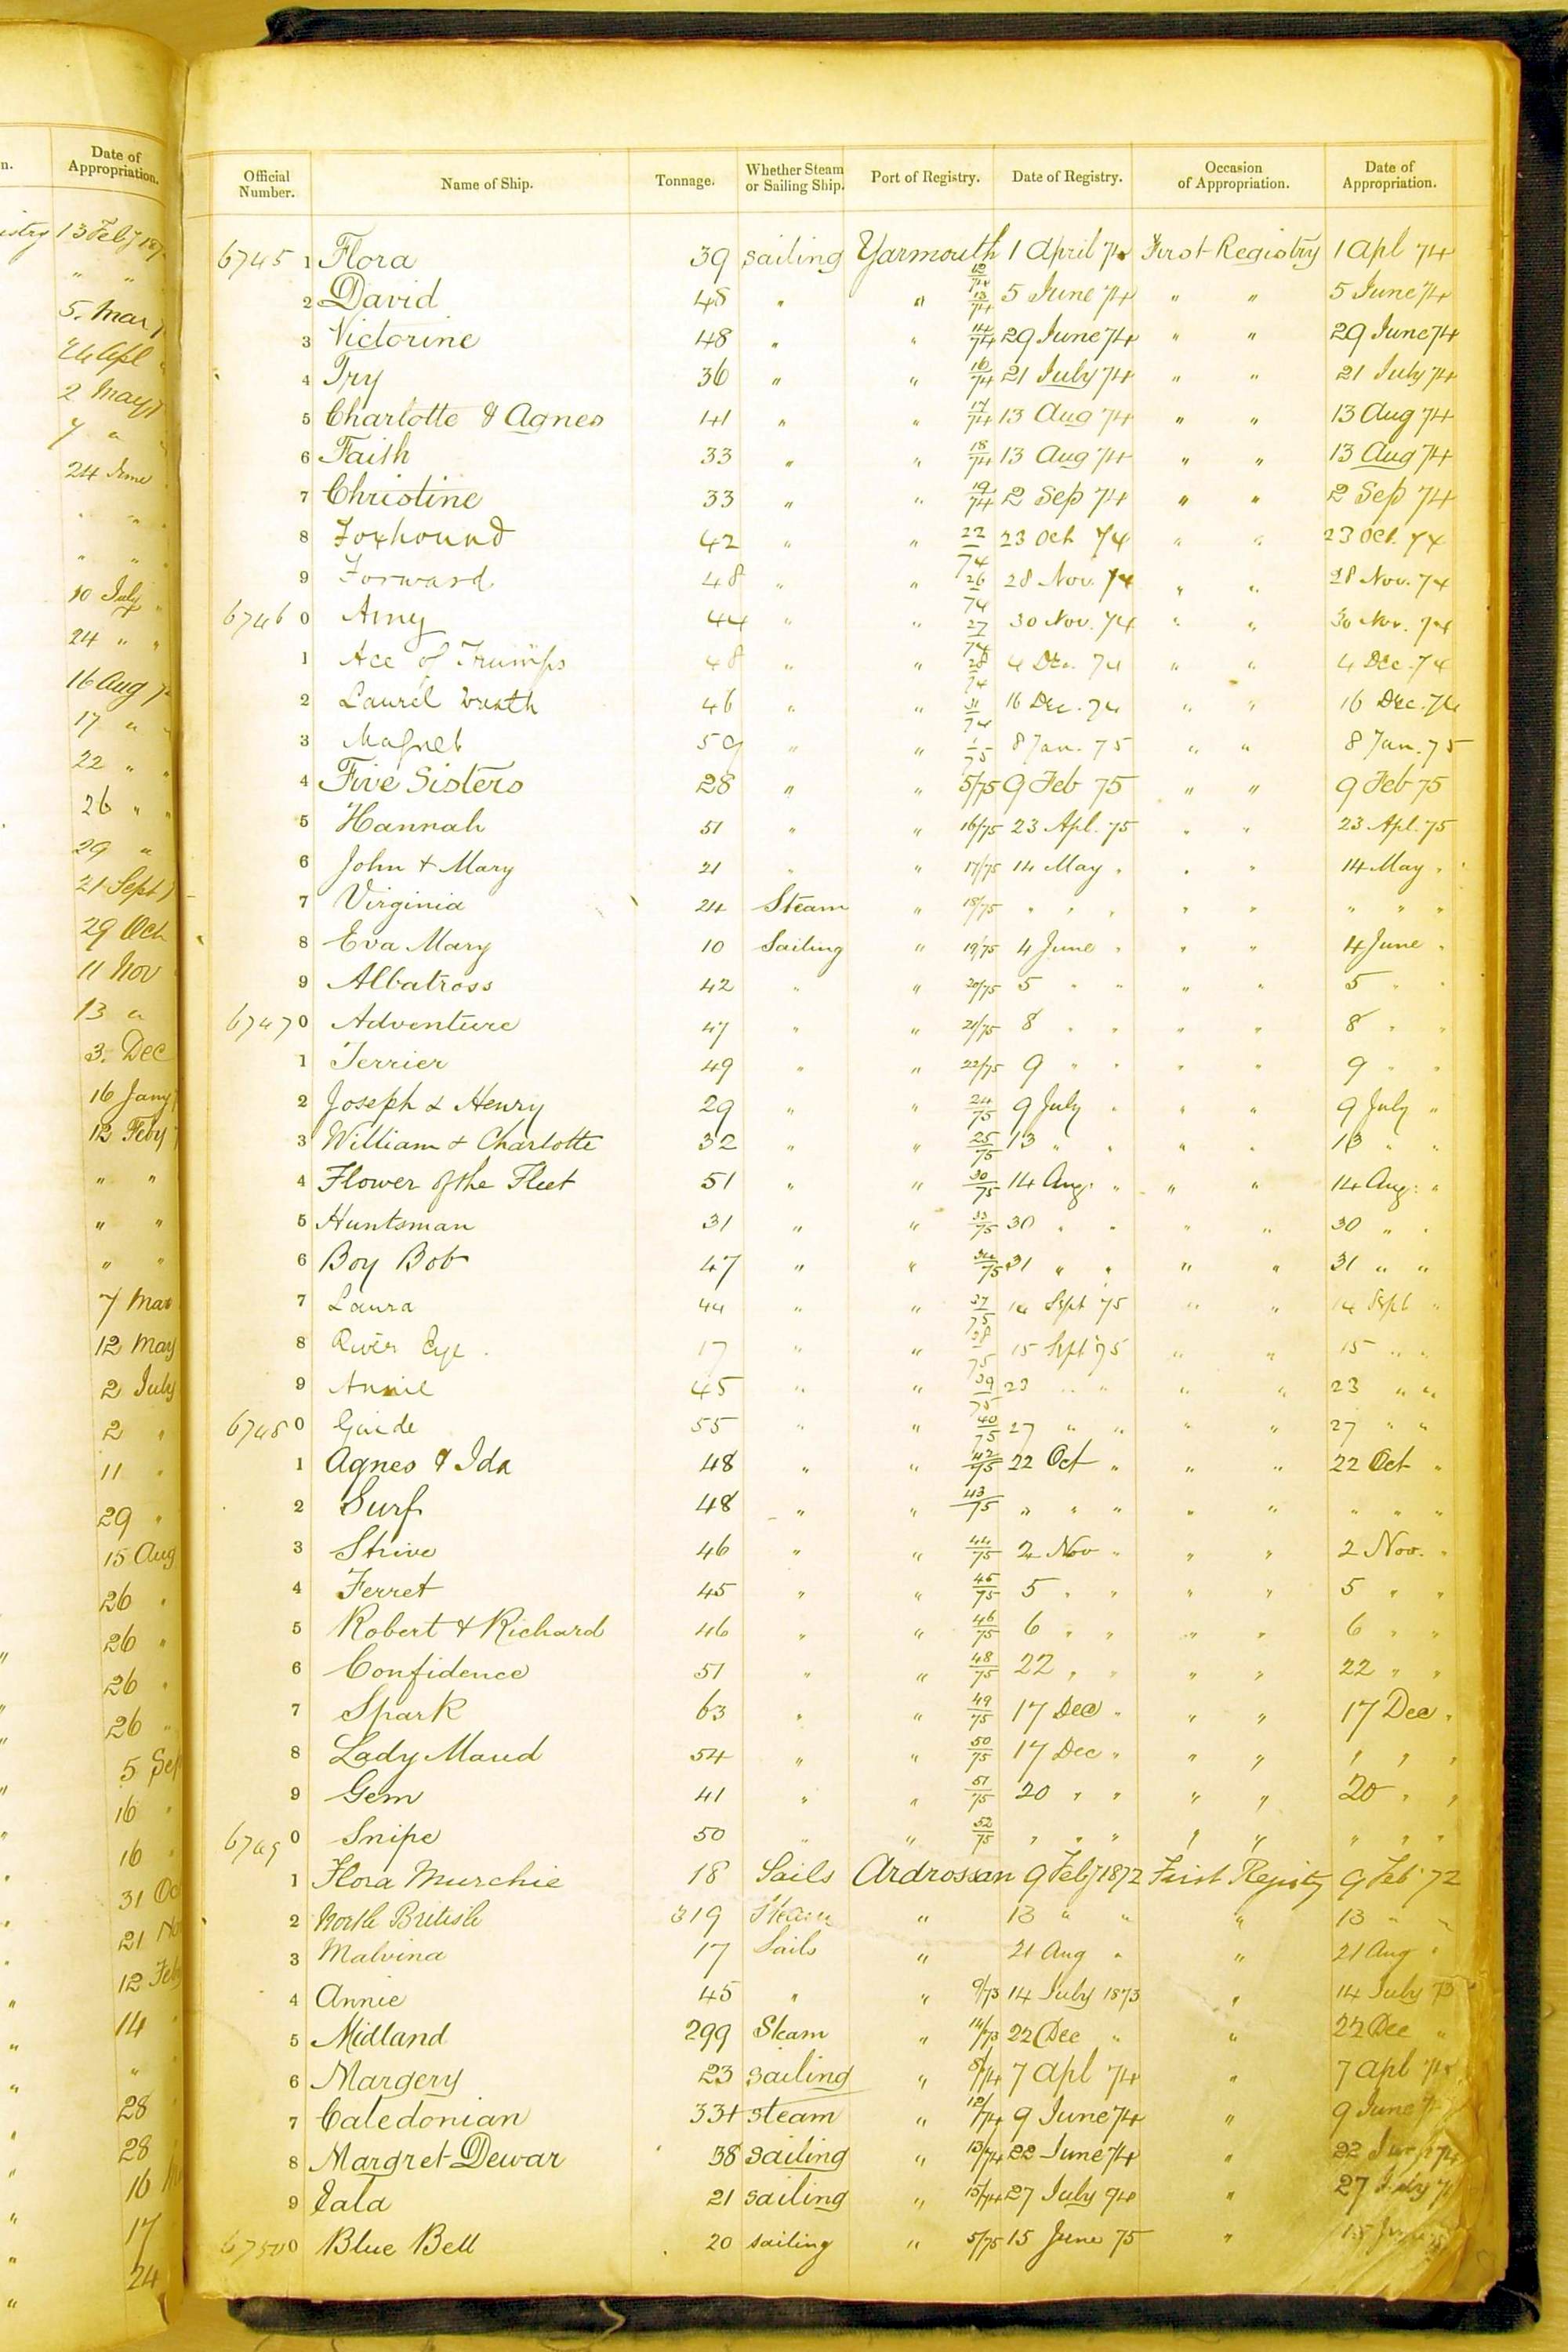 n.
Date of
Appropriation.
istry 13 Feby 187
" "
5. Mar 7
26 Apl "
2 May 7
7 "
24 June
" "
" "
10 July "
24 " "
16 Aug 7
17 " "
22 " "
26 " "
29 "
21 Sept 7
29 Oct
11 Nov
13 "
3. Dec
16 Jany 7
12 Feby 7
" "
" "
" "
7 Mar
12 May
2 July
2 "
11 "
29 "
15 Aug
26 "
26 "
26 "
26 "
5 Sep
16 "
16 "
31 Oc
21 No
12 Feb
14 "
" "
28
28
16
17
24
Official Number. Name of Ship. Tonnage. Whether Steam or Sailing Ship. Port of Registry. Date of Registry. Occasion of Appropriation. Date of Appropriation.
6745 1 Flora 39 sailing Yarmouth 12/74 1 April 74 First Registry 1 Apl 74
2 David 48 " " 13/74 5 June 74 " " 5 June 74
3 Victorine 48 " " 14/74 29 June 74 " " 29 June 74
4 Try 36 " " 16/74 21 July 74 " " 21 July 74
5 Charlotte & Agnes 41 " " 17/74 13 Aug 74 " " 13 Aug 74
6 Faith 33 " " 18/74 13 Aug 74 " " 13 Aug 74
7 Christine 33 " " 19/74 2 Sep 74 " " 2 Sep 74
8 Foxhound 42 " " 22/74 23 Oct 74 " " 23 Oct. 74
9 Forward 48 " " 26/74 28 Nov. 74 " " 28 Nov. 74
6746 0 Amy 44 " " 27/74 30 Nov. 74 " " 30 Nov. 74
1 Ace of Trumps 48 " " 28/74 4 Dec. 74 " " 4 Dec. 74
2 Laurel Wreath 46 " " 31/74 16 Dec. 74 " " 16 Dec. 74
3 Magnet 59 " " 1/75 8 Jan. 75 " " 8 Jan. 75
4 Five Sisters 28 " " 5/75 9 Feb 75 " " 9 Feb 75
5 Hannah 51 " " 16/75 23 Apl. 75 " " 23 Apl. 75
6 John & Mary 21 " " 17/75 14 May " " " 14 May "
7 Virginia 24 Steam " 18/75 " " " " " " " "
8 Eva Mary 10 Sailing " 19/75 4 June " " " 4 June "
9 Albatross 42 " " 20/75 5 " " " " 5 " "
6747 0 Adventure 47 " " 21/75 8 " " " " 8 " "
1 Terrier 49 " " 22/75 9 " " " " 9 " "
2 Joseph & Henry 29 " " 24/75 9 July " " " 9 July "
3 William & Charlotte 32 " " 25/75 13 " " " " 13 " "
4 Flower of the Fleet 51 " " 30/75 14 Aug. " " " 14 Aug. "
5 Huntsman 31 " " 33/75 30 " " " " 30 " "
6 Boy Bob 47 " " 34/75 31 " " " " 31 " "
7 Laura 44 " " 37/75 14 Sept 75 " " 14 Sept "
8 River Eye. 17 " " 38/75 15 Sept 75 " " 15 " "
9 Annie 45 " " 39/75 23 " " " " 23 " "
6748 0 Guide 55 " " 40/75 27 " " " " 27 " "
1 Agnes & Ida 48 " " 42/75 22 Oct " " " 22 Oct "
2 Surf 48 " " 43/75 " " " " " " " "
3 Strive 46 " " 44/75 2 Nov " " " 2 Nov. "
4 Ferret 45 " " 45/75 5 " " " " 5 " "
5 Robert & Richard 46 " " 46/75 6 " " " " 6 " "
6 Confidence 51 " " 48/75 22 " " " " 22 " "
7 Spark 63 " " 49/75 17 Dec " " " 17 Dec "
8 Lady Maud 54 " " 50/75 17 Dec " " " " " "
9 Gem 41 " " 51/75 20 " " " " 20 " "
6749 0 Snipe 50 " " 52/75 " " " " " " " "
1 Flora Murchie 18 Sails Ardrossan 9 Feby 1872 First Registry 9 Feb 72
2 North British 319 Steam " 13 " " " 13 " "
3 Malvina 17 Sails " 21 Aug " " 21 Aug "
4 Annie 45 " " 9/73 14 July 1873 " 14 July 73
5 Midland 299 Steam " 14/73 22 Dec " " 22 Dec "
6 Margery 23 sailing " 7 Apl 74 " 7 Apl 74
7 Caledonian 331 steam " 12/74 9 June 74 " 9 June 7
8 Margret Dewar 38 sailing " 13/74 22 June 74 " 22 June 74
9 21 sailing " 15/74 27 July 74 " 27 July 7
6750 0 Blue Bell 20 sailing " 5/75 15 June 75 " 15 June